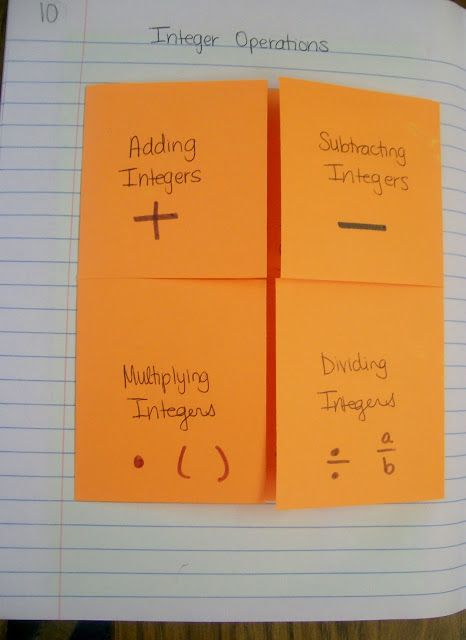 10
Integer Operations
Adding
Integers
+
Subtracting
Integers
−
Multiplying
Integers
• ( )
Dividing
Integers
÷ a/b